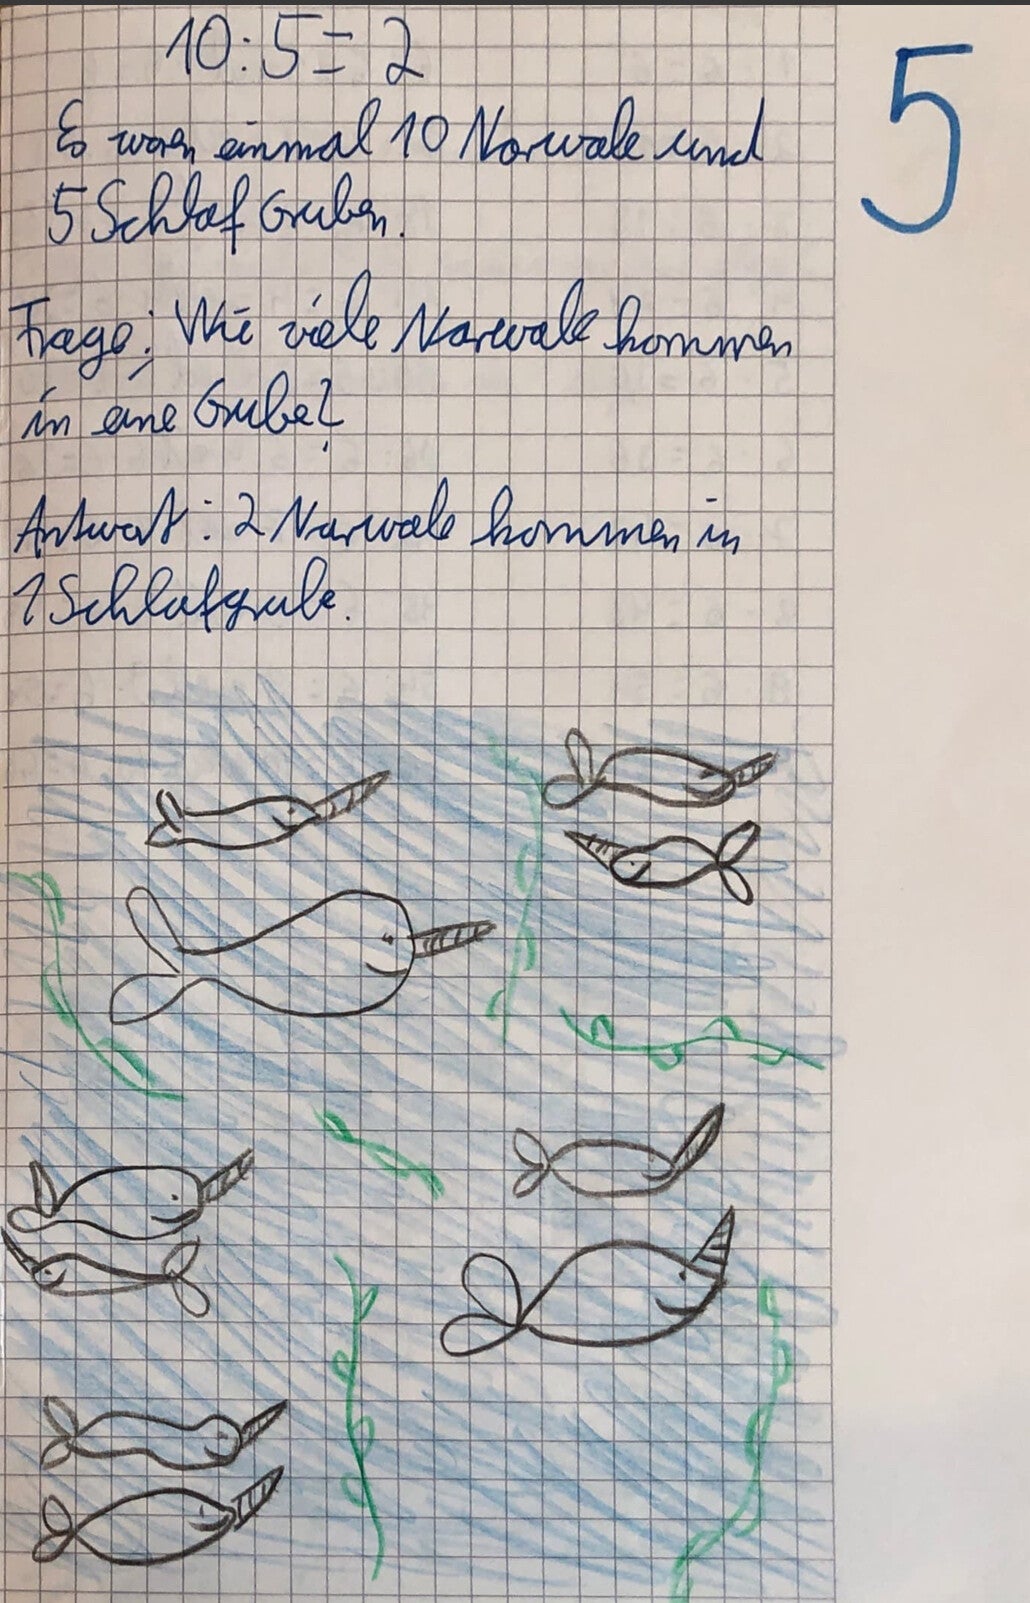 10:5=2
5
Es waren einmal 10 Narwale und
5 Schlaf Gruben.
Frage: Wie viele Narwale kommen
in eine Grube?
Antwort: 2 Narwale kommen in
1 Schlafgrube.